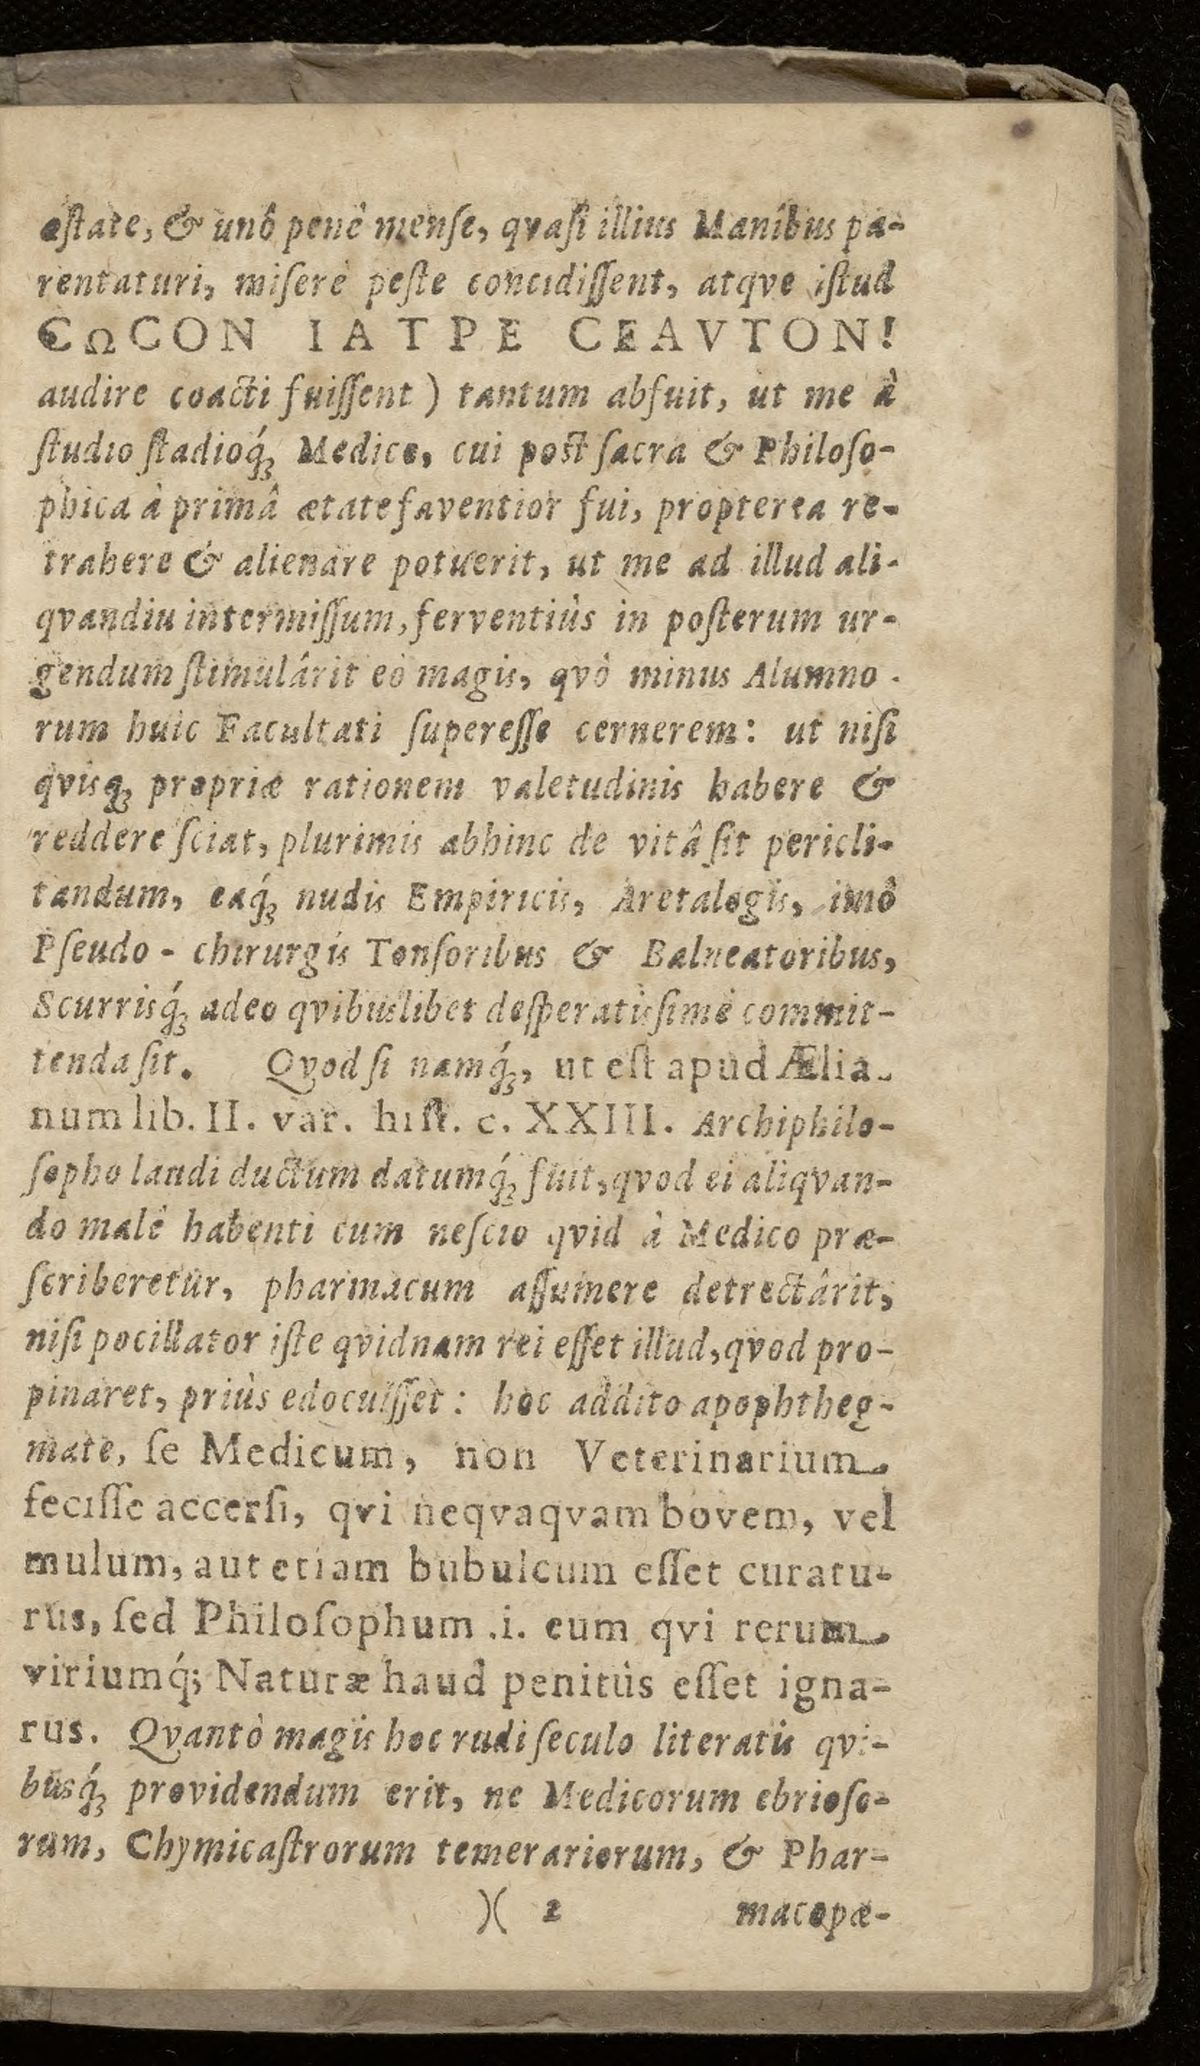 æſtate, & unô penè menſe, qvaſi illius Manibus pa-
rentaturi, miſerè peſte concidiſſent, atqve iſtud
CΩCON IATPE CEAVTON!
audire coacti fuiſſent) tantum abfuit, ut me à
ſtudio ſtadioq́ꝫ Medico, cui poſt ſacra & Philoſo-
phica à primâ ætate faventior fui, propterea re-
trahere & alienare potuerit, ut me ad illud ali-
qvandiu intermiſſum, ferventiùs in poſterum ur-
gendum ſtimulârit eò magis, qvò minus Alumno-
rum huic Facultati ſupereſſe cernerem: ut niſi
qvisqꝫ propriæ rationem valetudinis habere &
reddere ſciat, plurimis abhinc de vitâ ſit pericli-
tandum, eaq́ꝫ nudis Empiricis, Aretalogis, imò
Pſeudo-chirurgis Tonſoribus & Balneatoribus,
Scurrisq́ꝫ adeo qvibuslibet deſperatiſſimè commit-
tenda ſit. Qvod ſi namq́ꝫ, ut eſt apud Ælia-
num lib. II. var. hiſt. c. XXIII. Archiphilo-
ſopho laudi ductum datumq́ꝫ fuit, qvod ei aliqvan-
do malè habenti cum neſcio qvid à Medico præ-
ſcriberetur, pharmacum aſſumere detrectârit,
niſi pocillator iſte qvidnam rei eſſet illud, qvod pro-
pinaret, priùs edocuiſſet: hoc addito apophtheg-
mate, ſe Medicum, non Veterinarium
feciſſe accerſi, qvi neqvaqvam bovem, vel
mulum, aut etiam bubulcum eſſet curatu-
rus, ſed Philoſophum .i. eum qvi rerum
viriumq́; Naturæ haud penitùs eſſet igna-
rus. Qvantò magis hoc rudi ſeculo literatis qvi-
busq́ꝫ providendum erit, ne Medicorum ebrioſo-
rum, Chymicaſtrorum temerariorum, & Phar-
)( 2 macopæ-